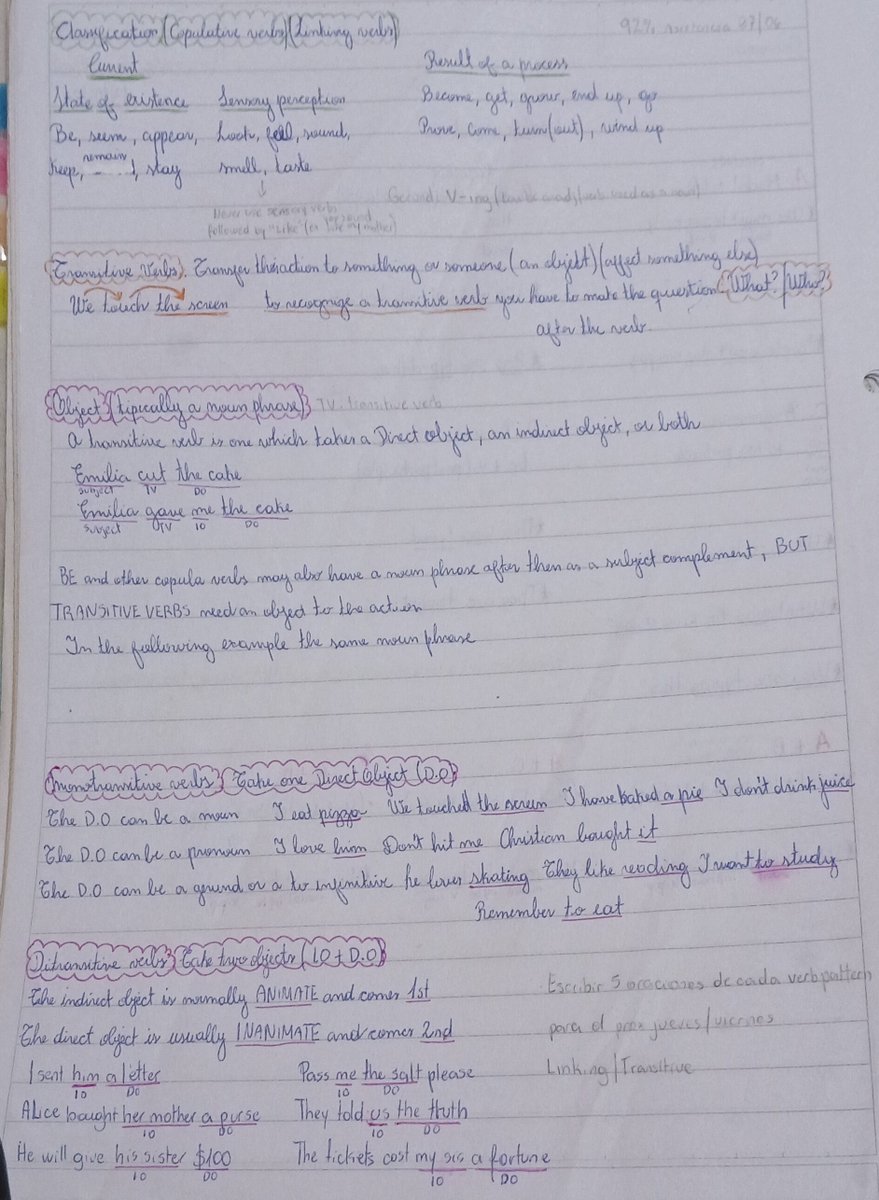 Classification (Copulative verbs) (Linking verbs)
92% asistencia 27/06
Current
Result of a process
State of existence Sensory perception
Become, get, grow, end up, go
Be, seem, appear, Look, feel, sound,
Prove, come, turn (out), wind up
keep, remain, stay smell, taste
Gerund: V-ing
Never use sensory verbs
followed by "Like"
Transitive Verbs. Transfer the action to something or someone (an object) (affect something else)
We touch the screen to recognize a transitive verb you have to make the question (What? / Who?)
after the verb
Object (tipically a noun phrase) TV: transitive verb
A transitive verb is one which takes a Direct object, an indirect object, or both
Emilia cut the cake
subject TV DO
Emilia gave me the cake
subject DTV IO DO
BE and other copula verbs may also have a noun phrase after then as a subject complement, BUT
TRANSITIVE VERBS need an object to the action
In the following example the same noun phrase
Monotransitive verbs Take one Direct Object (D.O)
The D.O can be a noun I eat pizza We touched the screen I have baked a pie I don't drink juice
The D.O can be a pronoun I love him Don't hit me Christian bought it
The D.O can be a gerund or a to infinitive he loves skating They like reading I want to study
Remember to eat
Ditransitive verbs Take two objects (I.O + D.O)
The indirect object is normally ANIMATE and comes 1st
Escribir 5 oraciones de cada verb pattern
The direct object is usually INANIMATE and comes 2nd
para el prox jueves/viernes
I sent him a letter Pass me the salt please
Linking/Transitive
IO DO IO DO
Alice bought her mother a purse They told us the truth
IO DO IO DO
He will give his sister $100 The tickets cost my sis a fortune
IO DO IO DO